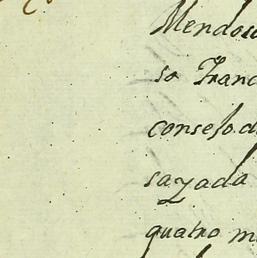 Mendou
so Franc
conselo.d
sazada
quatro m